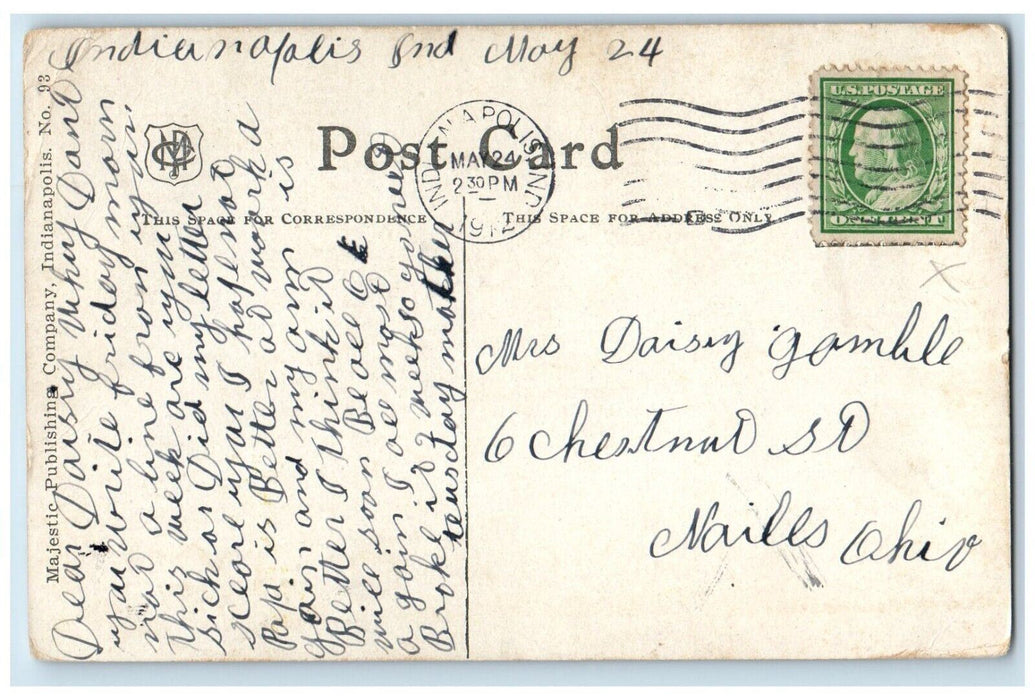 Indianapolis Ind May 24
Post Card
THIS SPACE FOR CORRESPONDENCE
THIS SPACE FOR ADDRESS ONLY
Majestic Publishing Company, Indianapolis. No. 93
INDIANAPOLIS, IND.
MAY 24
2 30 PM
1912
U.S. POSTAGE
ONE CENT
Dear Daisy Why Dont
you write friday morn
no a line from you
this week are you
sick or Did my letter
sceare you I hafe not
Papa is Better at work a
gain and my arm is
Better I think it
will soon Be all
a gain I all most
Broke it 2 weeks ago next
teusday mother
Mrs Daisy Gamble
6 Chestnut St
Nailes Ohio